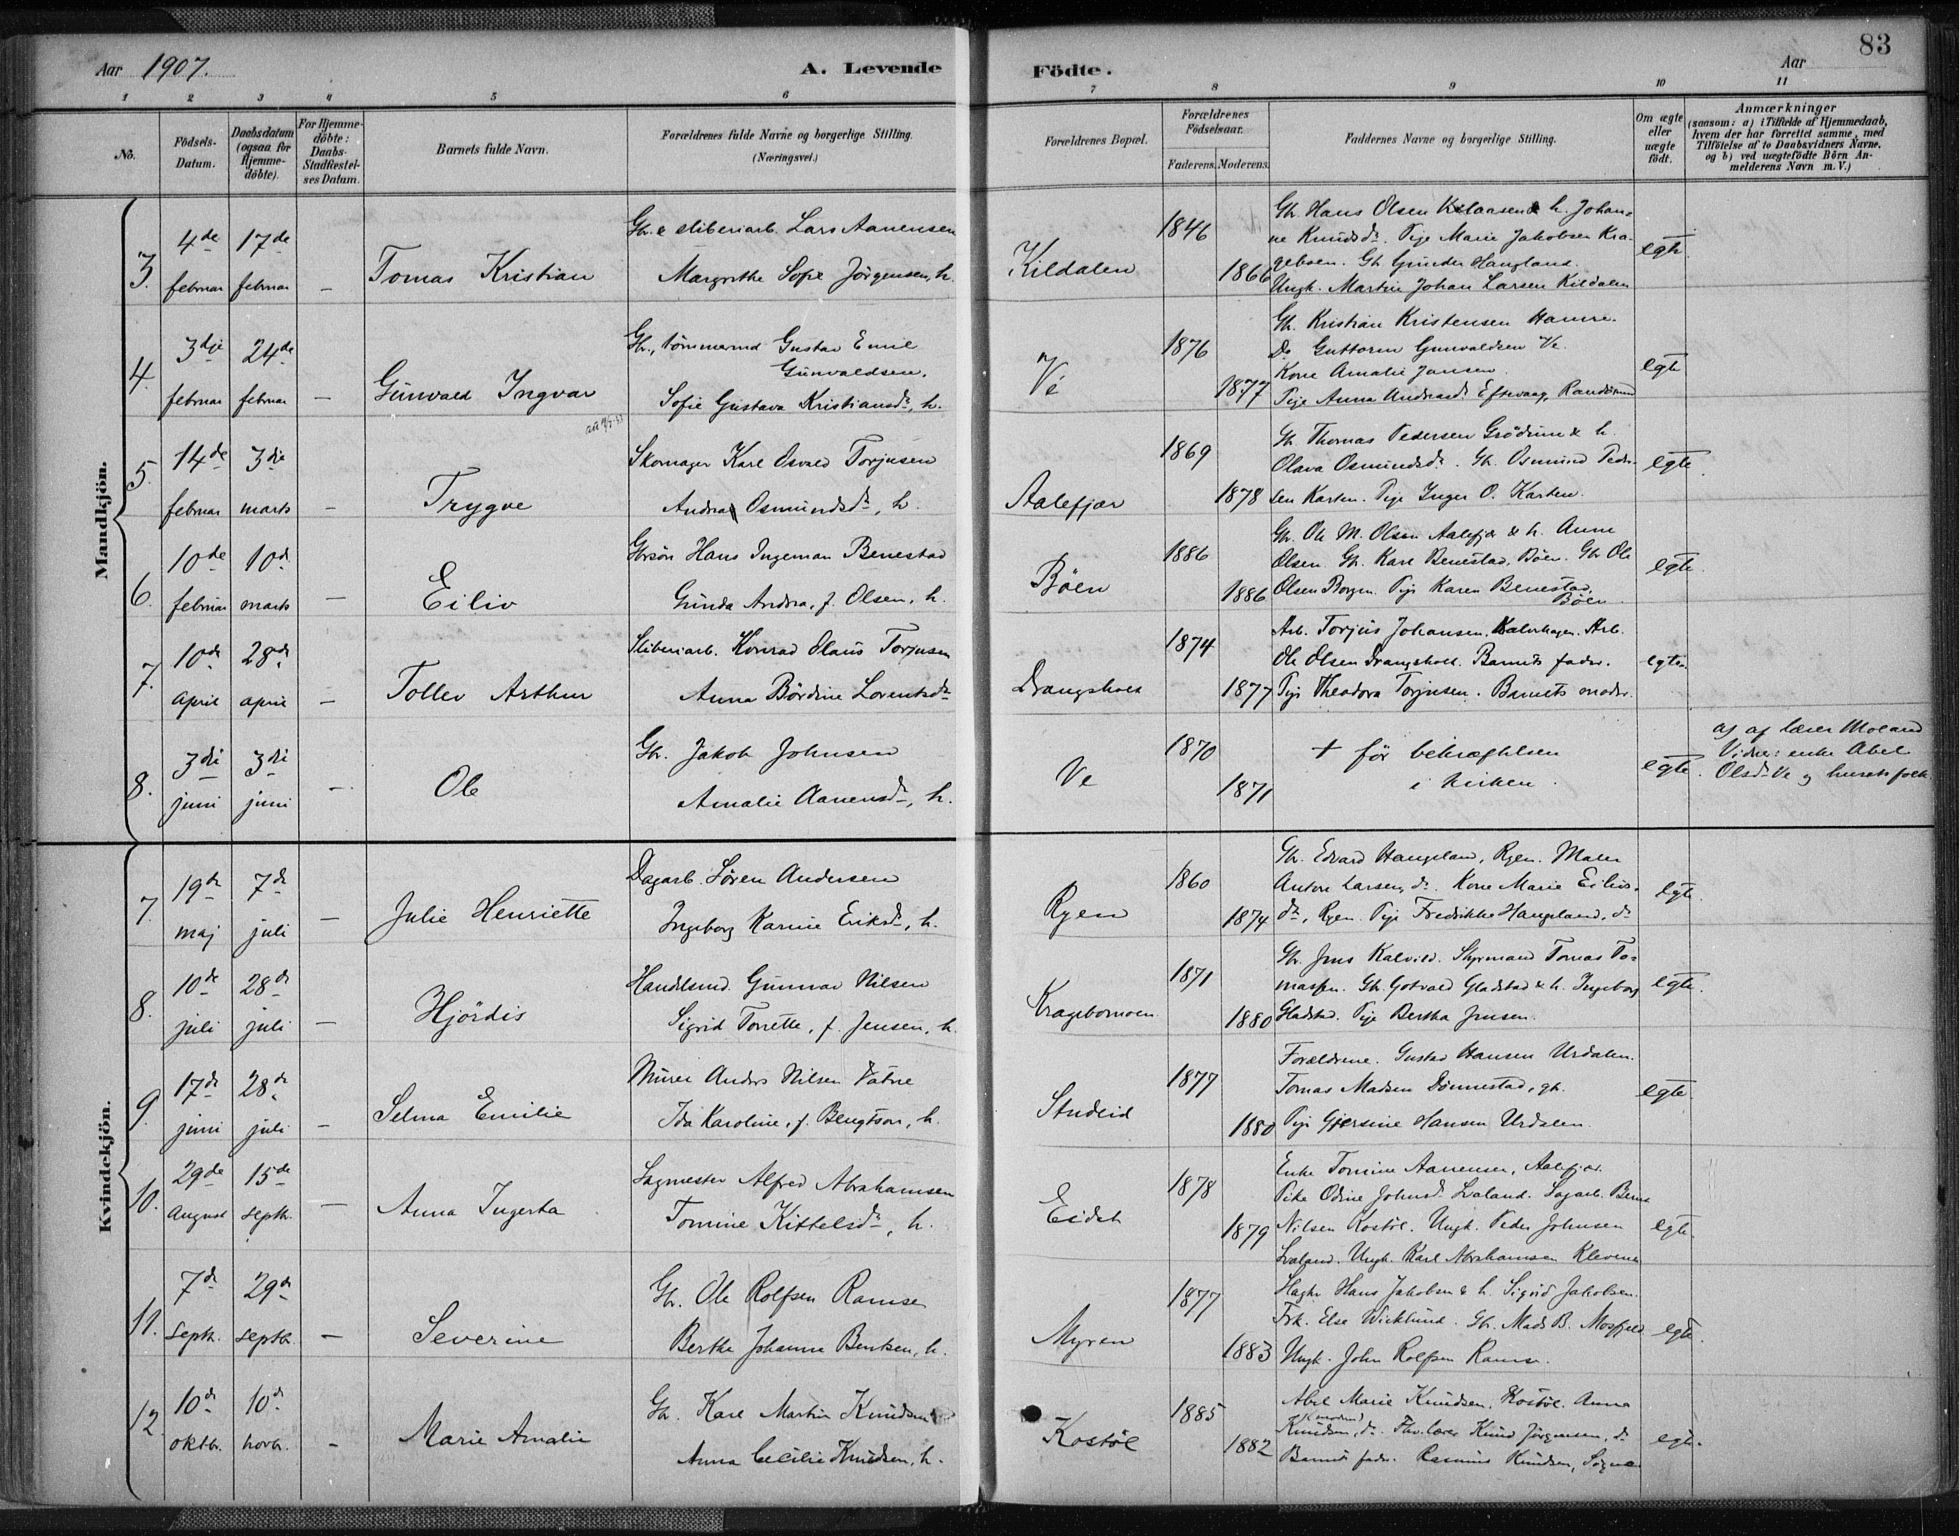 83
Aar 1907.
A. Levende Födte.
Aar
1 2 3 4 5 6 7 8 9 10 11
No.
Födsels-Datum.
Daabsdatum (ogsaa for Hjemme-döbte).
For Hjemme-döbte: Daabs-Stadfæstel-ses Datum.
Barnets fulde Navn.
Forældrenes fulde Navne og borgerlige Stilling. (Næringsvei.)
Forældrenes Bopæl.
Forældrenes Födselsaar.
Faderens. Moderens.
Faddernes Navne og borgerlige Stilling.
Om ægte eller uægte födt.
Anmærkninger (saasom: a) i Tilfælde af Hjemmedaab, hvem der har forrettet samme, med Tilföielse af to Daabsvidners Navne, og b) ved uægtefödte Börn An-melderens Navn m. V.)
Mandkjön.
3. 4de februar 17de februar – Tomas Kristian
Gbr. & sliberiarb. Lars Aanensen
Margrethe Sofie Jörgensen, h.
Kildalen 1846 1866
Gbr. Hans Olsen & h. Johan-
ne Knudsdr. Pige Marie Jakobsen Kra-
geboen. Gbr Gunder Haugland.
Ungk. Martin Johan Larsen Kildalen
egte
4. 3dje februar 24de februar – Gunvald Ingvar
Gbr., tömmermd Gustav Emil
Gunvaldsen.
Sofie Gustava Kristiansdr, h.
Ve 1876 1877
Gbr. Kristian Kristensen Hamre.
Do Guttorm Gunvaldsen Ve.
Kone Amalie Jansen.
Pige Anna Andreasdr Eftevaag, Randösund
egte
5. 14de februar 3die marts – Trygve
Skomager Karl Osvald Torjusen
Andrea Osmundsdr, h.
Aalefjær 1869 1878
Gbr. Thomas Pedersen Grödum & h.
Olava Osmundsdr. Gbr. Osmund Peder-
sen Karten. Pige Inger O. Karten.
egte.
6. 10de februar 10de marts – Eiliv
Gbrsön Hans Ingeman Benestad
Gunda Andrea, f. Olsen, h.
Böen 1886 1886
Gbr. Ole M. Olsen Aalefjær & h. Anne
Olsen. Gbr. Karl Benestad, Böen. Gbr Ole
Olsen Borgen. Pige Karen Benestad,
Böen.
egte.
7. 10de april 28de april – Tollev Arthur
Sliberiarb. Konrad Olaus Torjusen
Anna Bördine Lorentsdr
Drangsholt 1874 1877
Arb. Torjus Johansen, Arb.
Ole Olsen Drangsholt. Barnets fader.
Pige Theodora Torjusen. Barnets moder.
egte.
8. 3die juni 3die juni – Ole
Gbr. Jakob Johnsen
Amalie Aanensdr, h.
Ve 1870 1871
+ för bekræftelsen
i kirken.
egte.
a) af lærer Moland
Vidner: enke Abel
Olsdr Ve og husets folk.
Kvindekjön.
7. 19de maj 7de juli – Julie Henriette
Dagarb. Sören Andersen
Ingeborg Karine Eriksdr, h.
Ryen 1860 1874
Gbr. Edvard Haugeland, Ryen. Maler
Anton Larsen, do. Kone Marie Eilivs-
dr, Ryen. Pige Fredrikke Haugeland, do
egte.
8. 10de juli 28de juli – Hjördis
Handelsmd. Gunnar Nilsen
Sigrid Torette, f. Jensen, h.
Kragebomoen 1871 1880
Gbr. Jens Kalvild. Styrmand Tomas To-
massen. Gbr Gotvald Gladstad & h. Ingeborg
Gladstad. Pige Bertha Jensen.
egte.
9. 17de juni 28de juli – Selma Emilie
Murer Anders Nilsen Vatne
Ida Karoline, f. Bengtson, h.
Studeid 1877 1880
Forældrene. Gustav Hansen Urdalen.
Tomas Madsen Dönnestad, gbr.
Pige Gjersine Hansen Urdalen.
egte.
10. 29de august 15de septb. – Anna Ingerta
Sagmester Alfred Abrahamsen
Tomine Kittelsdr, h.
Eidet 1878 1879
Enke Tomine Aanensen, Aalefjær.
Pike Odine Johnsdr Lvaland. Sagarb. Bernt
Nilsen Kostöl. Ungk. Peder Johnsen
Lvaland. Ungk. Karl Abrahamsen Klevene
egte.
11. 7de septb. 29de septb. – Severine
Gbr. Ole Rolfsen Ramse
Berthe Johanne Bentsen, h.
Myren 1877 1883
Hans Jakobsen & h. Sigrid Jakobsen.
Frk. Else Wicklund. Gbr. Mads B. Mosfjeld
Ungk. John Rolfsen Ramse.
egte.
12. 10de oktb. 10de novb. – Marie Amalie
Gbr. Karl Martin Knudsen
Anna Cecilie Knudsen, h.
Kostöl 1885 1882
Abel Marie Knudsen, Kostöl. Anna
Knudsen, (moderen) do. Fhv. lærer Knud Jörgensen, do
Barnets fader. Rasmus Knudsen, Sögne
egte.